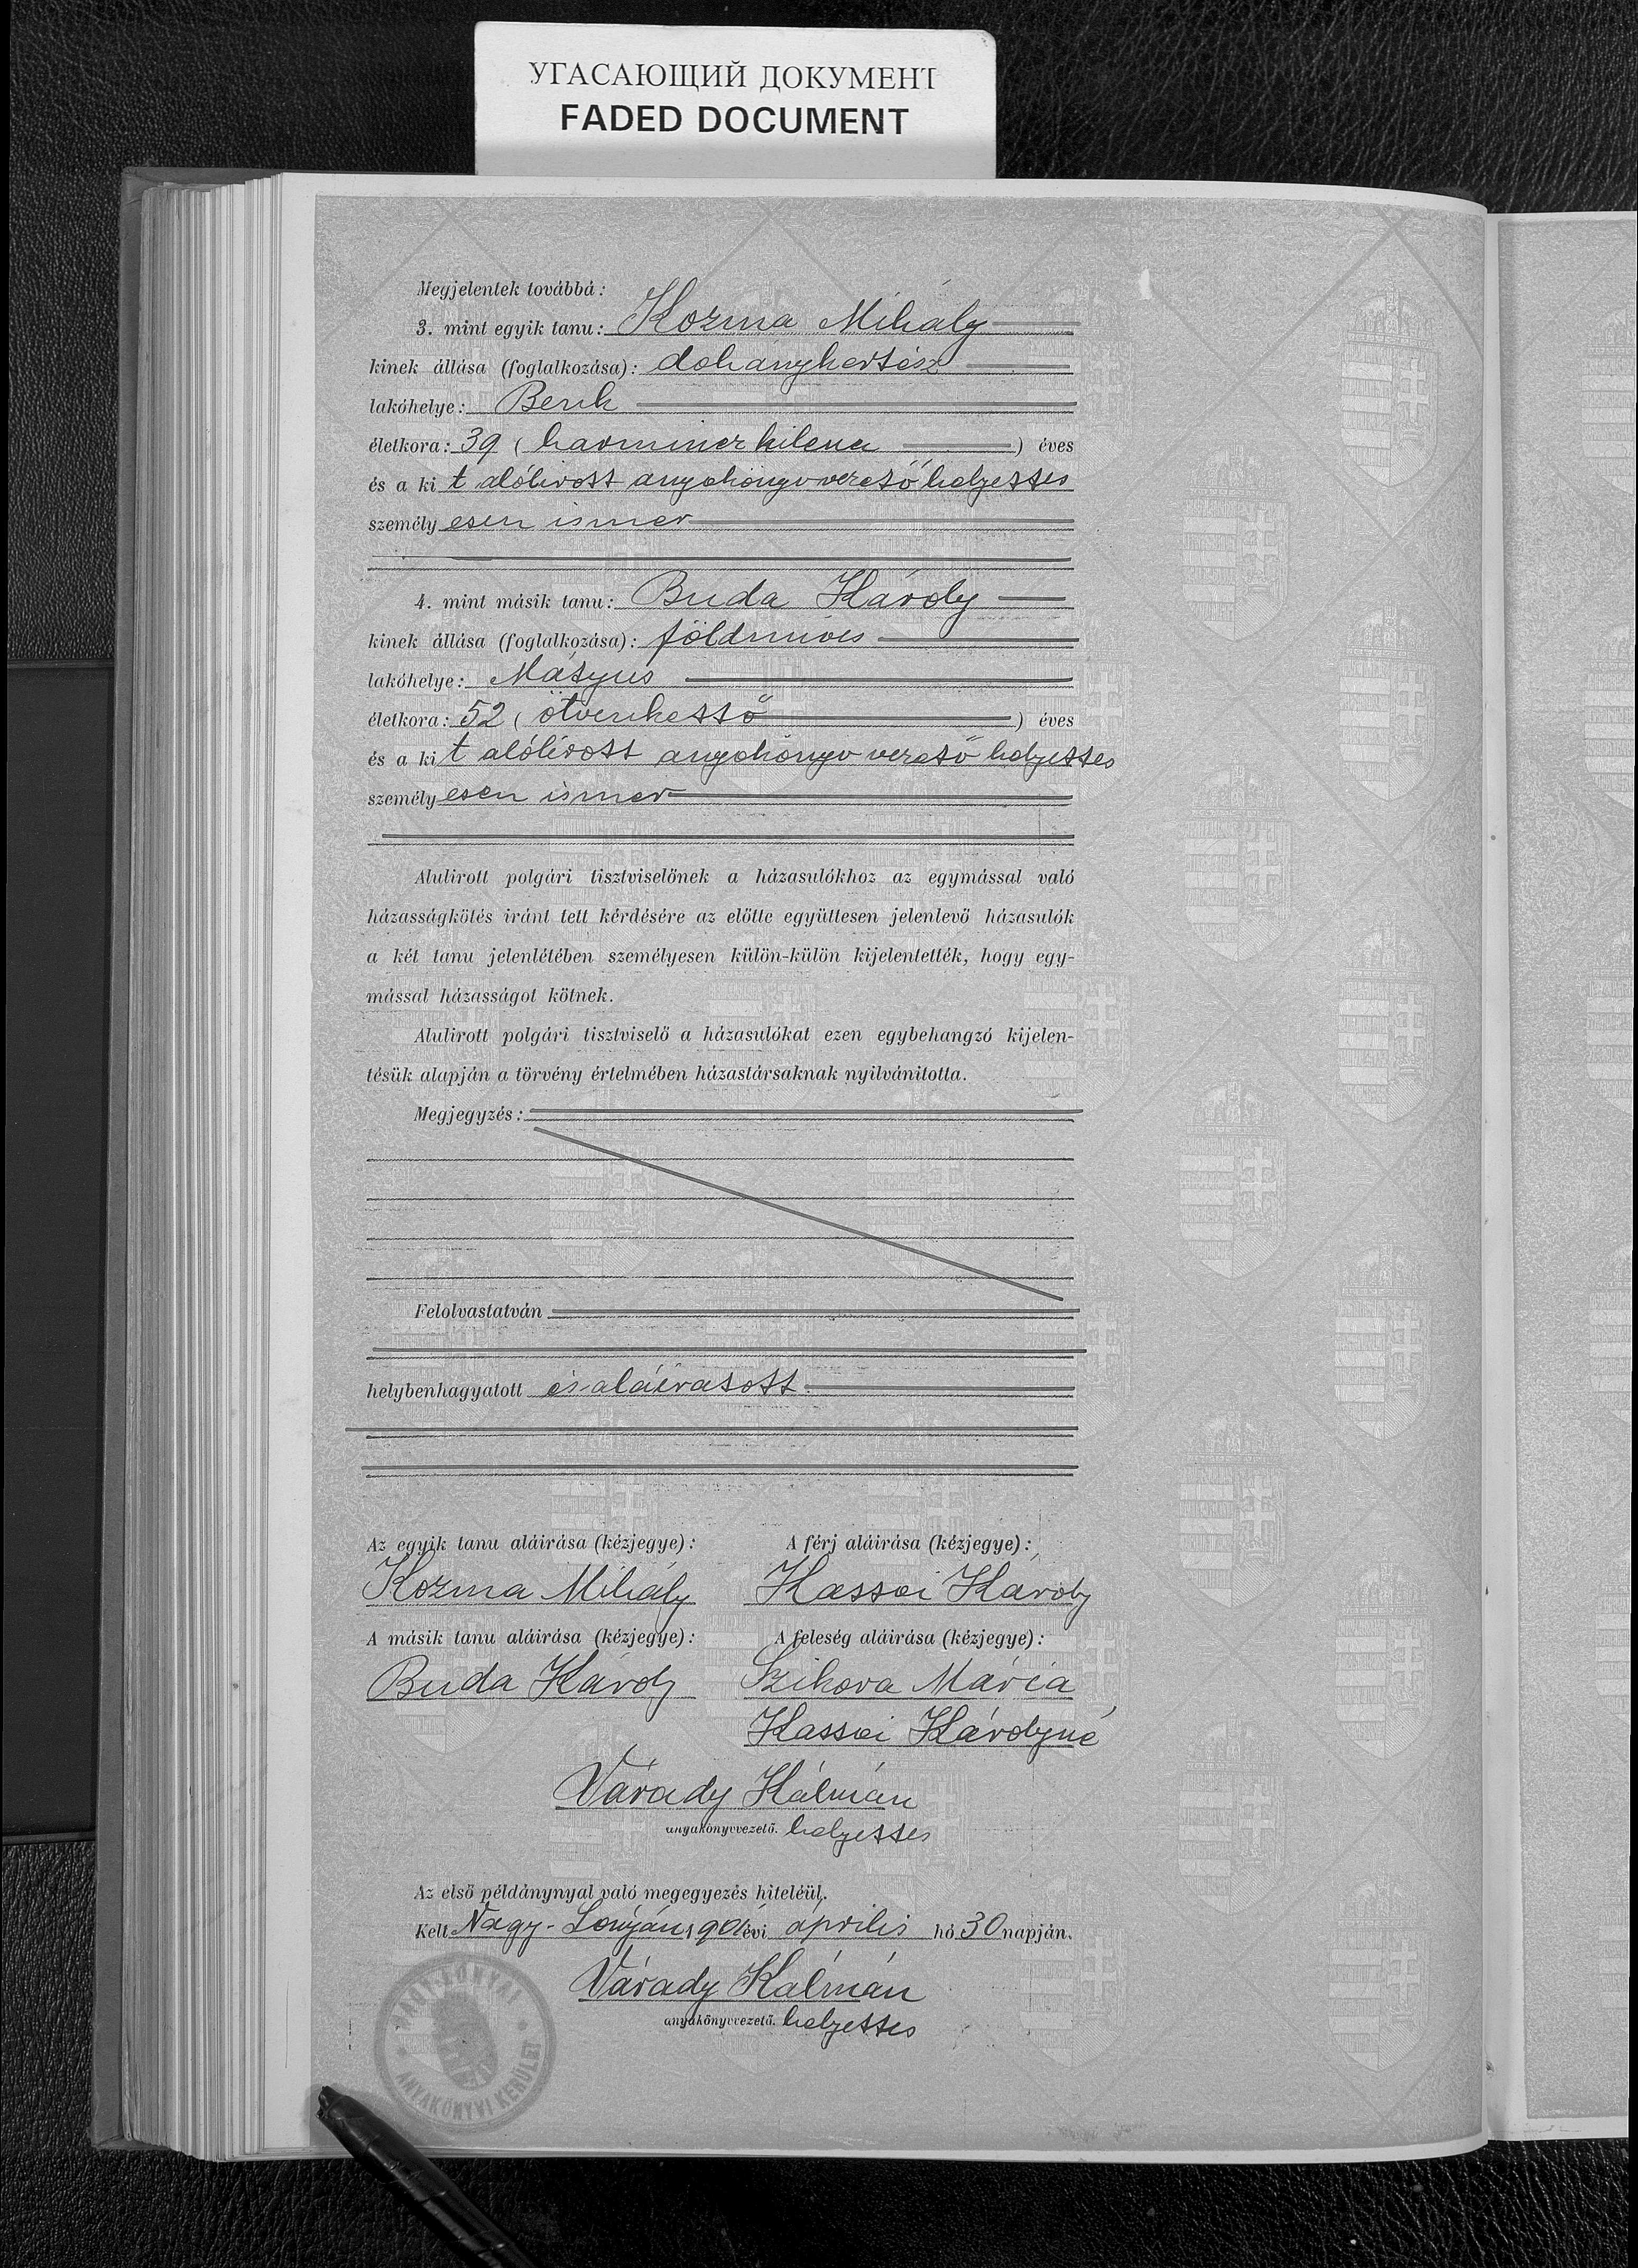 УГАСАЮЩИЙ ДОКУМЕНТ
FADED DOCUMENT
Megjelentek továbbá:
3. mint egyik tanu: Kozma Mihály
kinek állása (foglalkozása): dohánykertész
lakóhelye: Benk
életkora: 39 (harminczkilencz) éves
és a kit alólirott anyakönyvvezető helyettes
személyesen ismer
4. mint másik tanu: Buda Károly
kinek állása (foglalkozása): földmíves
lakóhelye: Mátyus
életkora: 52 (ötvenkettő) éves
és a kit alólirott anyakönyvvezető helyettes
személyesen ismer
Alulirott polgári tisztviselőnek a házasulókhoz az egymással való
házasságkötés iránt tett kérdésére az előtte együttesen jelenlevő házasulók
a két tanu jelenlétében személyesen külön-külön kijelentették, hogy egy-
mással házasságot kötnek.
Alulirott polgári tisztviselő a házasulókat ezen egybehangzó kijelen-
tésük alapján a törvény értelmében házastársaknak nyilvánitotta.
Megjegyzés:
Felolvastatván
helybenhagyatott és aláíratott.
Az egyik tanu aláirása (kézjegye): A férj aláirása (kézjegye):
Kozma Mihály Kassai Károly
A másik tanu aláirása (kézjegye): A feleség aláirása (kézjegye):
Buda Károly Szikora Mária
Kassai Károlyné
Várady Kálmán
anyakönyvvezető. helyettes
Az első példánynyal való megegyezés hiteléül.
Kelt Nagy-Lónyán, 1901 évi április hó 30 napján.
Várady Kálmán
anyakönyvvezető. helyettes
NAGY-LÓNYAI
ANYAKÖNYVI KERÜLET